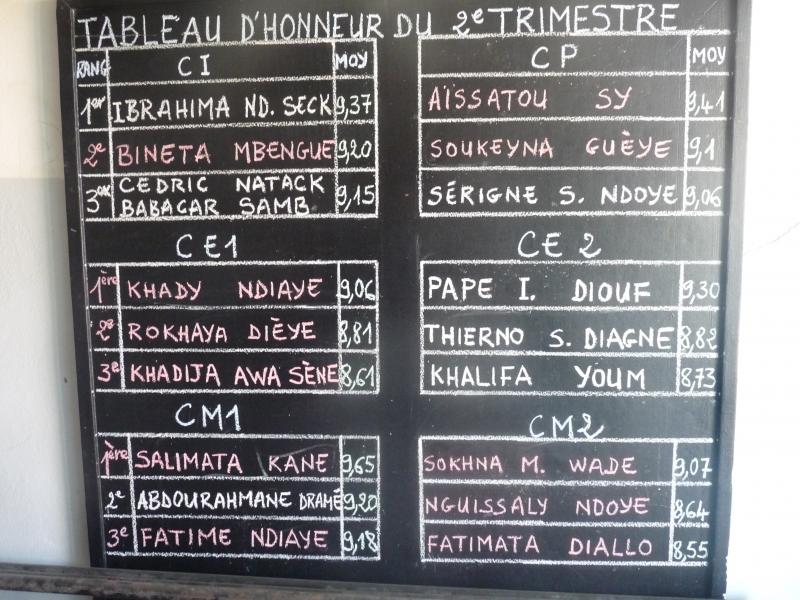 TABLEAU D'HONNEUR DU 2e TRIMESTRE
RANG CI MOY
1er IBRAHIMA ND. SECK 9,37
2e BINETA MBENGUE 9,20
3ex CEDRIC NATACK
BABACAR SAMB 9,15
CP MOY
AÏSSATOU SY 9,41
SOUKEYNA GUÈYE 9,1
SÉRIGNE S. NDOYE 9,06
CE1
1ère KHADY NDIAYE 9,06
2e ROKHAYA DIÈYE 8,81
3e KHADIJA AWA SÈNE 8,61
CE 2
PAPE I. DIOUF 9,30
THIERNO S. DIAGNE 8,82
KHALIFA YOUM 8,73
CM1
1ère SALIMATA KANE 9,65
2e ABDOURAHMANE DRAMÉ 9,20
3e FATIME NDIAYE 9,18
CM2
SOKHNA M. WADE 9,07
NGUISSALY NDOYE 8,64
FATIMATA DIALLO 8,55